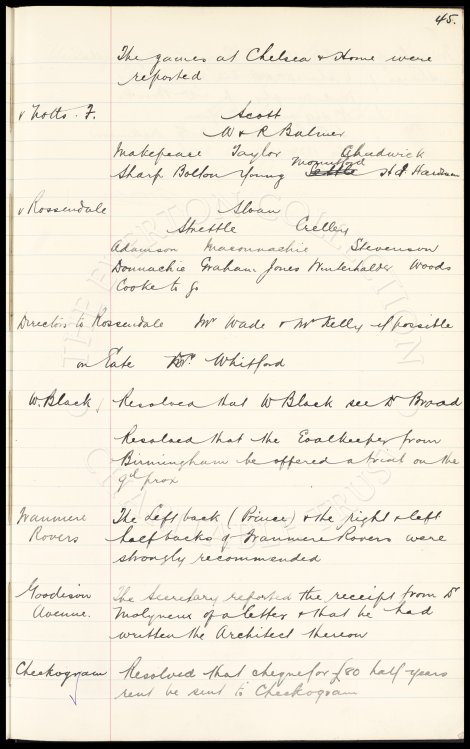 45.
The games at Chelsea & Home were
reported
v Notts. F. Scott
W & R Balmer
Makepeace Taylor Chadwick
Sharp Bolton Young Settle Mountford H.P. Hardman
v Rossendale Sloan
Strettle Crelley
Adamson Maconnachie Stevenson
Donnachie Graham Jones Winterhalder Woods
Cooke to go
Directors to Rossendale Mr Wade & Mr Kelly if possible
on Gate Dr. Whitford
W. Black Resolved that W Black see Dr Broad
Resolved that the Goalkeeper from
Birmingham be offered a trial on the
9th prox
Tranmere Rovers The Left back (Prince) & the right & left
half backs of Tranmere Rovers were
strongly recommended
Goodison Avenue. The Secretary reported the receipt from Dr
Molyneux of a letter & that he had
written the Architect thereon
Cheekogram Resolved that cheque for £80 half years
rent be sent to Cheekogram
THE EVERTON COLLECTION
CHARITABLE TRUST